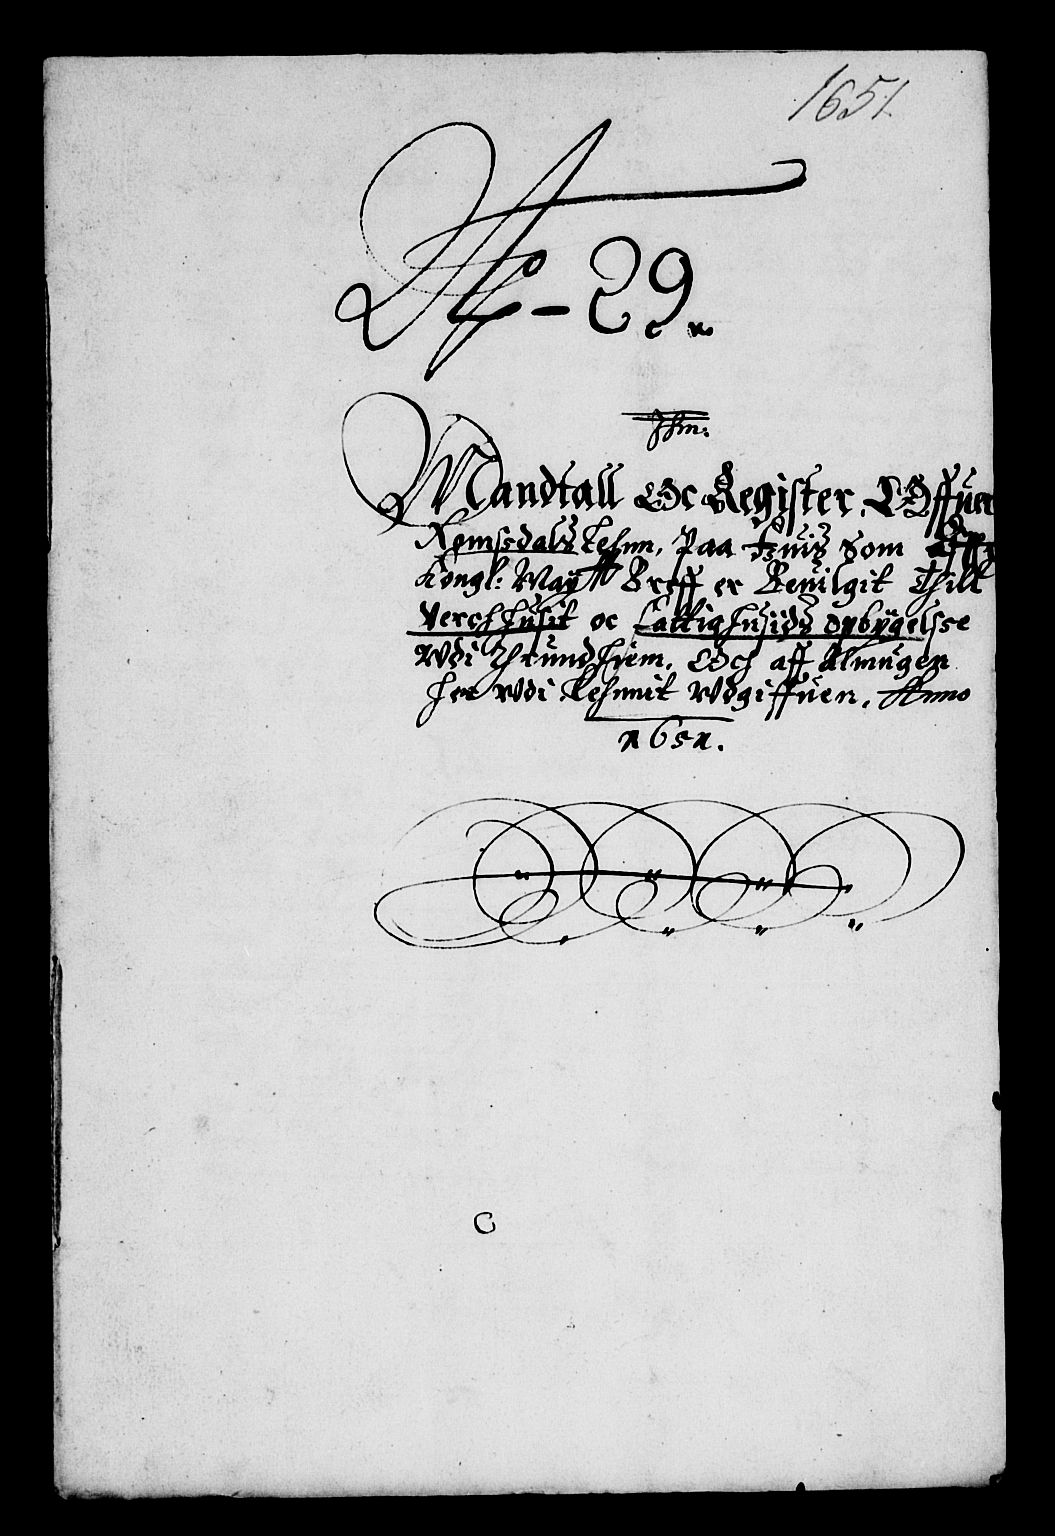 1651
No - 29.
Jhm:
Mandtall Oc Register, Offuer
Romssdals Lehnn, Paa huis Som Aff
Kongl: Maytt Breff er Beuilgit Thill
Verchhusit oc Fattighusids opbÿgelsse
Wdi Thrundhiem, Och aff Almugen
her wdi Lehnnit Wdgiffuen, Anno
1651.
C